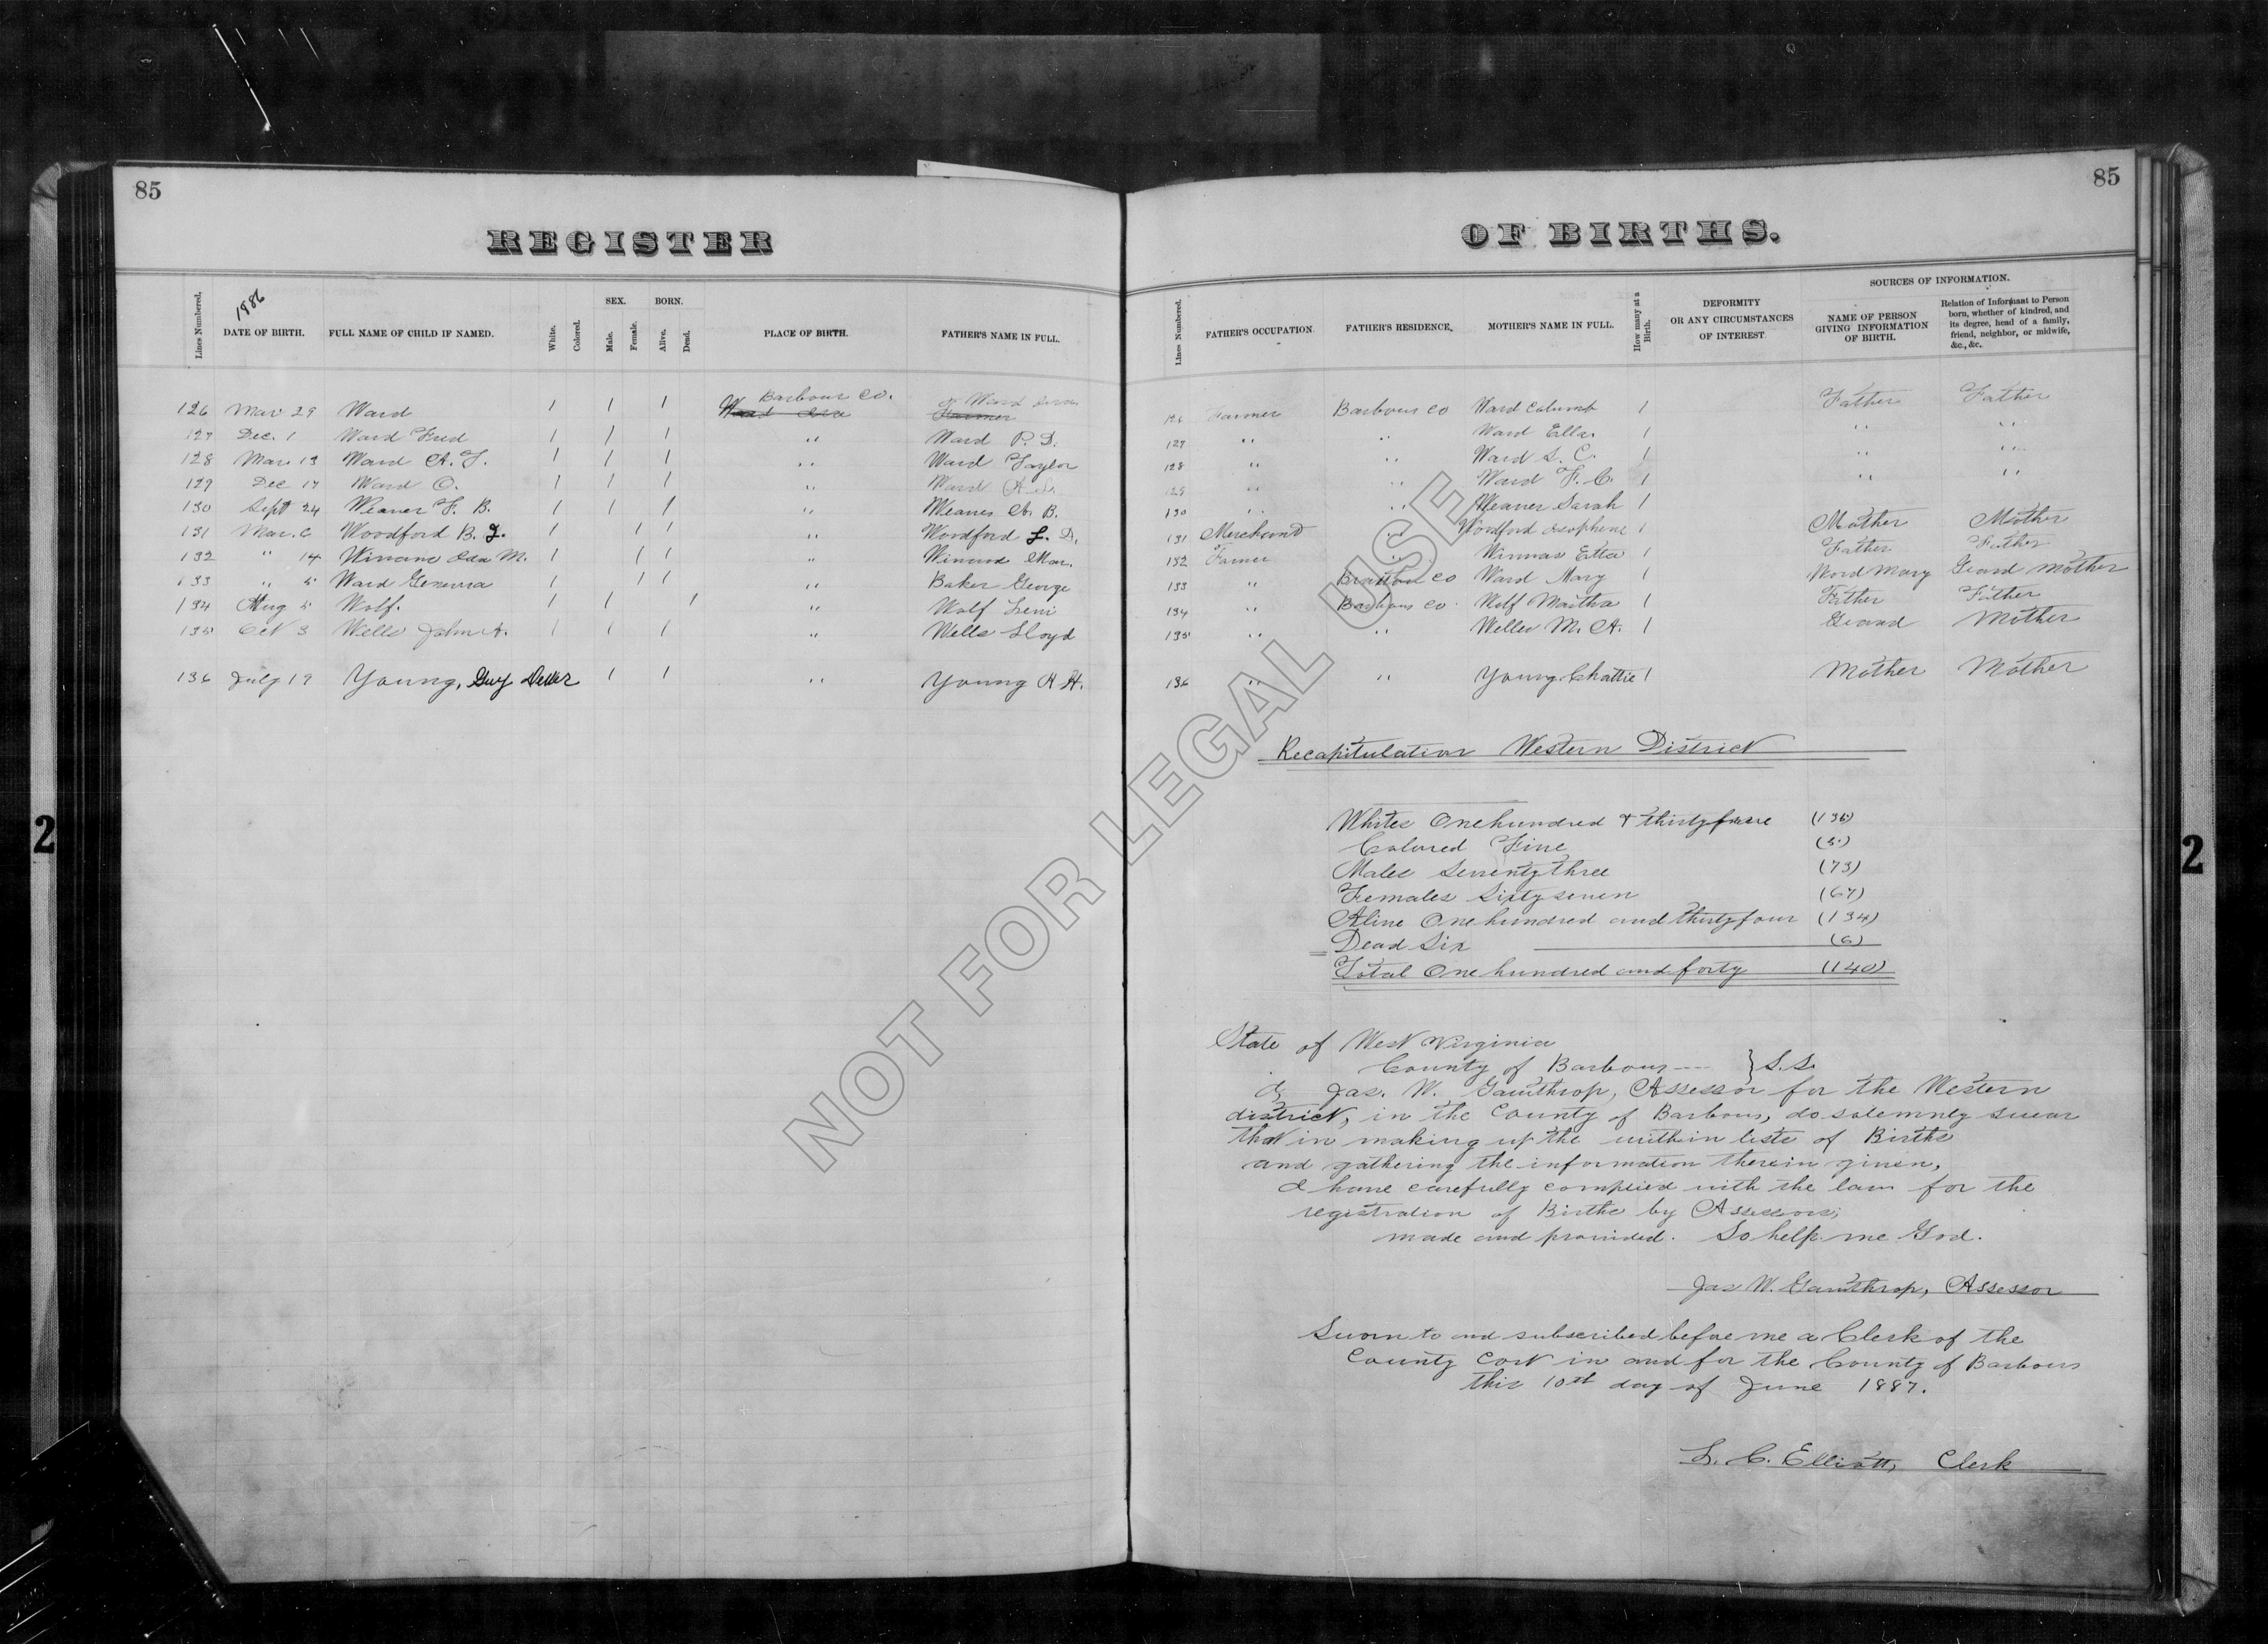 85
85
REGISTER
OF BIRTHS.
Lines Numbered.
1886
DATE OF BIRTH.
FULL NAME OF CHILD IF NAMED.
White.
Colored.
SEX.
Male.
Female.
BORN.
Alive.
Dead.
PLACE OF BIRTH.
FATHER'S NAME IN FULL.
Lines Numbered.
FATHER'S OCCUPATION.
FATHER'S RESIDENCE.
MOTHER'S NAME IN FULL.
How many at a Birth.
DEFORMITY
OR ANY CIRCUMSTANCES
OF INTEREST
SOURCES OF INFORMATION.
NAME OF PERSON
GIVING INFORMATION
OF BIRTH.
Relation of Informant to Person
born, whether of kindred, and
its degree, head of a family,
friend, neighbor, or midwife,
&c., &c.
126 Mar 29 Ward 1 1 1 Barbour Co. Ward 126 Farmer Barbour Co Ward Columb 1 Father Father
127 Dec. 1 Ward Fred 1 1 1 " Ward P. D. 127 " " Ward Ella. 1 " "
128 Mar. 13 Ward A. J. 1 1 1 " Ward Taylor 128 " " Ward S. C. 1 " "
129 Dec 17 Ward O. 1 1 1 " Ward 129 " " Ward F. C. 1 " "
130 Sept 24 Weaver F. B. 1 1 1 " Weaver B. 130 " " Weaver Sarah 1
131 Mar. 6 Woodford B. J. 1 1 1 " Woodford L. D. 131 Merchand " Woodford Josephene 1 Mother Mother
132 " 14 Winans Ada M. 1 1 1 " Winans Mar. 132 Farmer " Winnas Etta 1 Father Father
133 " 5 Ward Generra 1 1 1 " Baker George 133 " Braxton Co Ward Mary 1 Word Mary Grand Mother
134 Aug 5 Wolf. 1 1 1 " Wolf Levi 134 " Barbour Co. Wolf Martha 1 Father Father
135 Oct 3 Wells John A. 1 1 1 " Wells Lloyd 135 " " Welles M. A. 1 Grand Mother
136 July 19 Young, Guy Dever 1 1 " Young A. H. 136 " " Young Chattie 1 Mother Mother
Recapitulation Western District
Whites One hundred & thirty (136)
Colored Five (5)
Males Seventy three (73)
Females Sixty seven (67)
Alive One hundred and thirty four (134)
Dead Six (6)
Total One hundred and forty (140)
State of West Virginia
County of Barbour } S.S.
I, Jas. W. Gawthrop, Assessor for the Western
district, in the County of Barbour, do solemnly swear
that in making up the within lists of Births
and gathering the information therein given,
I have carefully complied with the law for the
registration of Births by Assessors,
made and provided. So help me God.
Jas W. Gawthrop, Assessor
Sworn to and subscribed before me a Clerk of the
County Cort in and for the County of Barbour
this 10th day of June 1887.
L. C. Elliott, Clerk
2
2
NOT FOR LEGAL USE